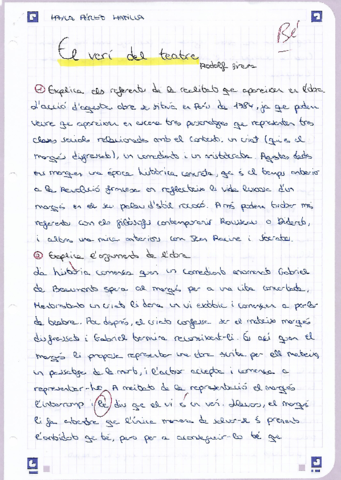 Bé
El verí del teatre
Rodolf Sirera
① Explica els referents de la realitat que apareixen en l'obra.
L'acció d'aquesta obra se situa en París de 1784, ja que podem
veure que apareixen en escena tres personatges que representen tres
classes socials relacionades amb el context, un criat (que és el
marqués disfressat), un comediant i un aristòcrata. Aquestes dades
ens marquen una època històrica concreta, que és el temps anterior
a la Revolució francesa on reflecteix la vida luxosa d'un
marqués en el seu palau d'estil rococó. A més podem trobar més
referents com els filòsofs contemporanis Rousseau o Diderot,
i altres una mica anteriors com Racine i Sòcrates.
② Explica l'argument de l'obra.
La història comença quan un comediant anomenat Gabriel
de Beaumont espera al marqués per a una cita concertada.
Mentrestant un criat li dona un vi exòtic i comencen a parlar
de teatre. Poc després, el criat confessa ser el mateix marqués
disfressat i Gabriel termina reconeixent-li. És així quan el
marqués li proposa representar una obra escrita per ell mateix,
un passatge de la mort, i l'actor accepta i comença a
representar-ho. A meitat de la representació el marqués
l'interromp i li diu que el vi és un verí. Aleshores, el marqués
li fa entendre que l'única manera de salvar-se és prenent
l'antídot que té, però per a aconseguir-lo té que